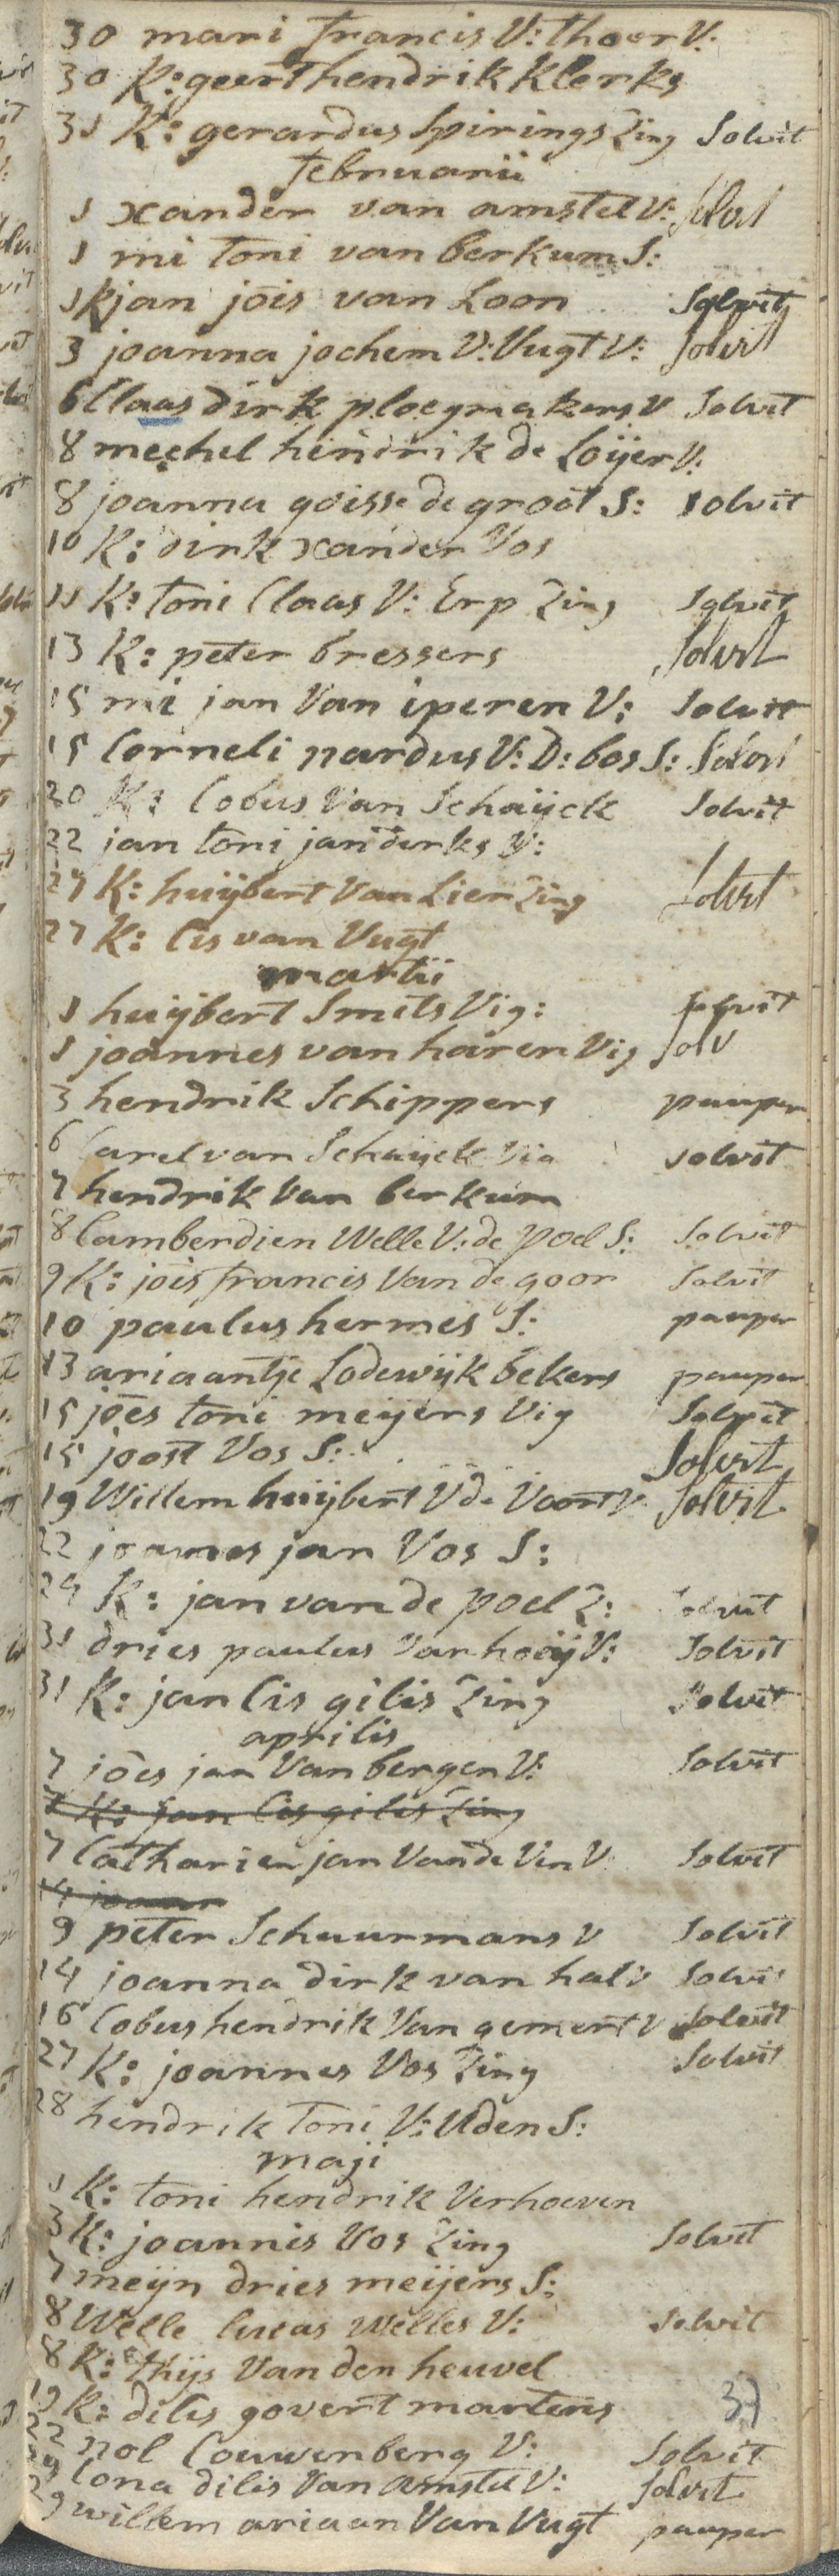 30 mari francis V: thoer V:
30 K: geert hendrik Klerks
31 K: gerardus Spirings Zing Solvit
februarii
1 xander van amstel V: Solvit
1 mi toni van berkum S:
1 K jan jois van Loon Solvit
3 joanna jochem V: Vugt V: Solvit
6 Claas dirk ploegmakers V Solvit
8 mechel hendrik de Loijer V:
8 joanna goisse de groot S: Solvit
10 K: dirk xander Vos
11 K: toni Claas V: Erp Zing Solvit
13 K: peter bressers Solvit
15 mi jan Van iperen V: Solvit
15 Corneli nardus V: D: bos S: Solvit
20 K: Cobus Van Schaijck Solvit
22 jan toni jan derks V:
24 K: huijbert Van Lier Zing Solvit
27 K: Cis van Vugt
martii
1 huijbert Smits Vig: Solvit
1 joannes van haren Vig Solv
3 hendrik Schippers pauper
6 Carel van Schaijck Vig Solvit
7 hendrik Van berkum
8 Lamberdien Welle V: de poel S: Solvit
9 K: jois francis Van de goor Solvit
10 paulus hermes S: pauper
13 ariaantje Lodewijk bekers pauper
15 joes toni meijers Vig Solvit
15 joost Vos S: Solvit
19 Willem huijbert V de Voort V Solvit
22 joannes jan Vos S:
29 K: jan van de poel Z: Solvit
31 dries paulus Van hooij V: Solvit
31 K: jan Cis gilis Zing Solvit
aprilis
7 joes jan Van bergen V: Solvit
7 K: jan Cis gilis Zing
7 Catharien jan Van de Ven V Solvit
14 joann
9 peter Schuurmans V Solvit
14 joanna dirk van hal V Solvit
16 Cobus hendrik Van gemert V Solvit
27 K: joannes Vos Zing Solvit
28 hendrik toni V: Uden S:
maji
1 K: toni hendrik Verhoeven
3 K: joannis Vos Zing Solvit
7 meijn dries meijers S:
8 Welle lucas Welles V: Solvit
8 K: thijs Van den heuvel
19 K: dilis govert martens 37
22 nol Couwenberg V: Solvit
29 Cona dilis Van amstel V: Solvit
29 willem ariaan Van Vugt pauper